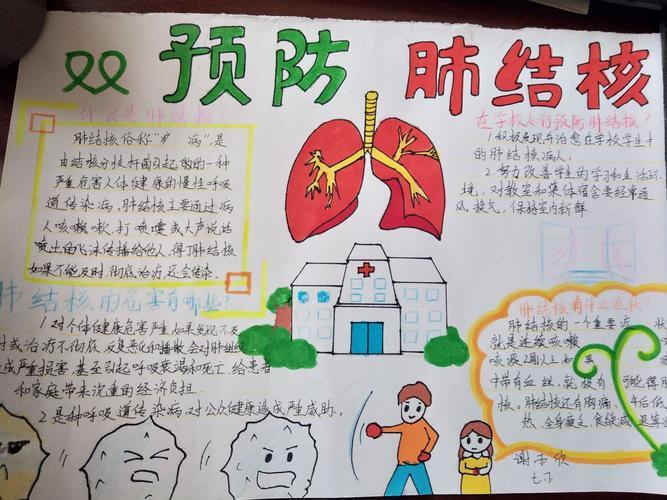 预防 肺结核
什么是肺结核?
肺结核俗称"疒 病"，是
由结核分枝杆菌引起的的一种
严重危害人体健康的慢性呼吸
道传染病，肺结核主要通过病
人咳嗽、打喷嚏或大声说话
喷出的飞沫传播给他人，得了肺结核
如果不能及时，彻底治疗还会传染。
肺结核的危害有哪些?
1.对个体健康危害严重如果发现不及
时或治疗不彻底，反复恶化和播散会对肺组织
造成严重损害 甚至引起呼吸衰竭和死亡，给患者
和家庭带来沉重的经济负担
2.是种呼吸道传染病，对公众健康造成严重威胁。
在学校如何预防肺结核?
1.积极发现并治愈在学校学生中
的肺结核病人。
2.努力改善学生的学习和生活环
境，对教室和集体宿舍要经常通
风换气，保持室内新鲜
肺结核有什么症状?
肺结核的一个重要症 状
就是连续咳嗽
咳痰2周以上如果
中带有血丝，就极有 可能得
核。肺结核还有胸痛、 午后低
热、全身疲乏、食欲减 退等
谢雨欣